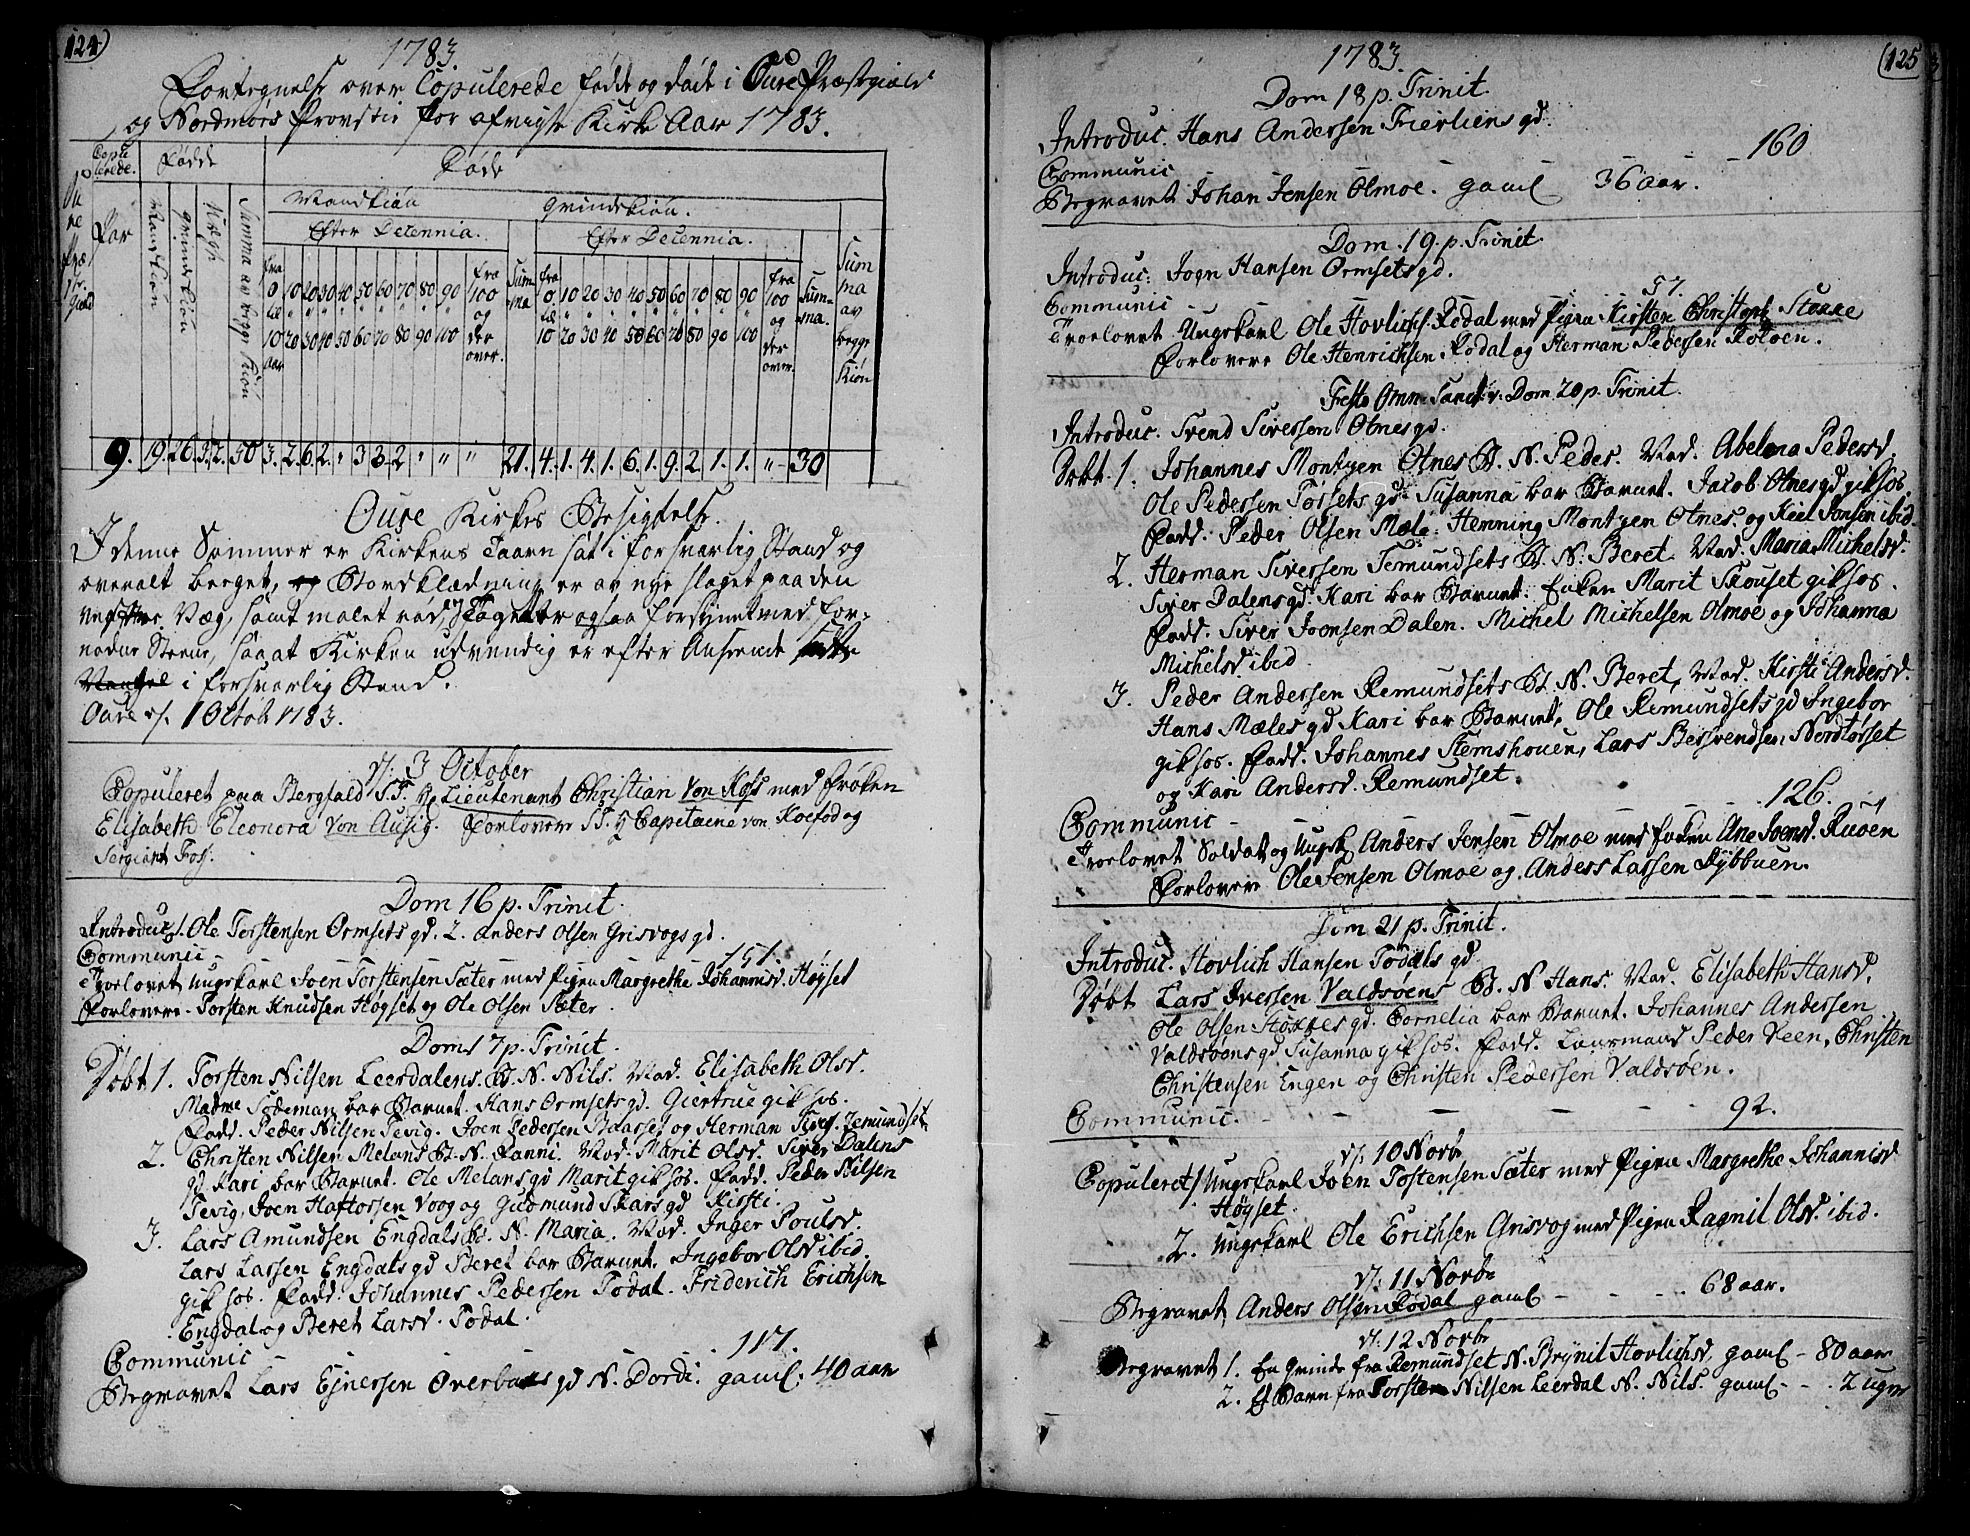 124
1783.
Fortegnelse over Copulerede fødde og døde i Oure Præstgield
og Nordmørs Provstie for afvigte Kirke Aar 1783.
Oure Præstegield
Copulerede. Fødde Døde
Par Mandkiön qvindekiön Summa av begge Kiön
Mandkiön qvindekiön.
Efter Decennia. Efter Decennia.
fra 0 til 10 aar 10 20 20 30 30 40 40 50 50 60 60 70 70 80 80 90 90 100 fra 100 og der over. Summa
fra 0 til 10 10 20 20 30 30 40 40 50 50 60 60 70 70 80 80 90 90 100 fra 100 og der over. Summa. Summa av begge Kiön
9. 19. 26 3. 2. 50 3. 2. 6. 2. " 3 3. 2 " " " 21. 4. 1. 4. 1. 6. 1. 9. 2. 1. 1. " 30
Oure Kirkes Besigtelse.
I denne Sommer er Kirkens Taarn sat i forsvarlig Stand og
overalt berget, og Bordklædning er av nye slaget paa den
vestre Væg, samt malet rød, Taget er ogsaa forsynet med for-
nødne Steene, saa at Kirken udvendig er efter Anseende
i forsvarlig Stand.
Oure d. 1 Octob 1783.
d. 3 October
Copuleret paa Bergsald S.T. Hr Lieutenant Christian Von Koss med Frøken
Elisabeth Eleonora Von Ausig. Forlovere S.T. Hr Capitaine von Koefod og
Sergiant Foss.
Dom 16 p. Trinit.
Introduc 1. Ole Torstensen Ormsets gd. 2. Anders Olsen Grisvogs gd.
Communic - 151.
Troelovet Ungkarl Joen Torstensen Sæter med Pigen Margrethe Johannisd. Høyset
Forlovere. Torsten Knudsen Høyset og Ole Olsen Sæter.
Dom 17 p. Trinit.
Døbt 1. Torsten Nilsen Leerdalens B. N. Nils. Mod. Elisabeth Olsd.
Madme Södeman bar Barnet. Hans Ormsets gd. Giertrue gik hos.
Fadd. Peder Nilsen Tevig. Joen Pedersen Baarset og Herman Sivers. Temundset
2. Christen Nilsen Melans B. N. Fanni. Mod. Marit Olsd. Siver Dalens
gd Kari bar Barnet. Ole Melans gd Marit gik hos. Fadd. Peder Nilsen
Tevig, Joen Haftorsen Voog og Gudmund Skars gd Kirsti.
3. Lars Amundsen Engdals B. N. Maria. Mod. Inger Poulsd.
Lars Larsen Engdals gd Beret bar Barnet. Ingebor Olsd ibid.
gik hos. Fadd. Johannes Pedersen Todal. Friderich Erichsen
Engdal og Beret Larsd. Todal.
Communic - 117.
Begravet Lars Ejnersen Overbøes gd N. Dordi. gaml. 40 aar
125
1783.
Dom 18 p. Trinit.
Introduc. Hans Andersen Frierliens gd.
Communic - 160
Begravet Johan Jensen Olmoe. gaml 36 aar.
Dom. 19. p. Trinit.
Introduc. Jogn Hansen Ormsets gd.
Communic - 57.
Troelovet Ungekarl Ole Hovlichs. Rodal med Pigen Kirsten Christophs Stokke
Forlovere Ole Henrichsen Rodal og Herman Pedersen Rotøen.
Festo Omn. Sanct. v. Dom 20 p. Trinit.
Introduc. Svend Siversen Otnes gd.
Døbt. 1. Johannes Montzen Otnes B. N. Peder. Mod. Abelona Pedersd.
Ole Pedersen Torsets gd. Susanna bar Barnet. Jacob Otnes gd gik hos.
Fadd. Peder Olsen Mæle. Hemning Montzen Otnes. og Keel Jonsen ibid
2. Herman Siversen Temundsets B. N. Beret. Mod. Maria Michelsd.
Siver Dalens gd. Kari bar Barnet. Enken Marit Skouset gik hos.
Fadd. Siver Joensen Dalen. Michel Michelsen Olmoe og Johanna
Michelsd ibid.
3. Peder Andersen Remundsets B. N. Beret, Mod. Kirsti Andersd.
Hans Mæles gd Kari bar Barnet, Ole Remundsets gd Ingebor
gik hos. Fadd. Johannes Stemshouen, Lars Bersvendsen Nordtørset
og Kari Andersd. Remundset.
Communic - 126.
Troelovet Soldat og Ungk. Anders Jensen Olmoe med Enken Ane Joensd. Ruøen
Forlovere Ole Jensen Olmoe og Anders Larsen Dybbuen.
Dom 21 p. Trinit.
Introduc. Hovlich Hansen Todals gd
Døbt Lars Iversen Valdsøens B. N Hans. Mod. Elisabeth Hansd.
Ole Olsen Stokkes gd. Cornelia bar Barnet. Johannes Andersen
Valdsøens gd Susanna gik hos. Fadd. Lansmand Peder Veen, Christen
Christensen Engen og Christen Pedersen Valdsøen.
Communic. - 92.
d. 10 Novb
Copuleret 1 Ungekarl Joen Tostensen Sæter med Pigen Margrethe Johannisd
Høyset.
2. Ungekarl Ole Erichsen Grisvog med Pigen Ragnil Olsd. ibid.
d. 11 Novb
Begravet Anders Olsen Rodal gaml - 68 aar.
d. 12 Novb
Begravet 1. En qvinde fra Remundset N. Brynil Hovlichsd. gaml - 80 aar
2. Et Barn fra Torsten Nilsen Leerdal N. Nils. gaml - 2 uger